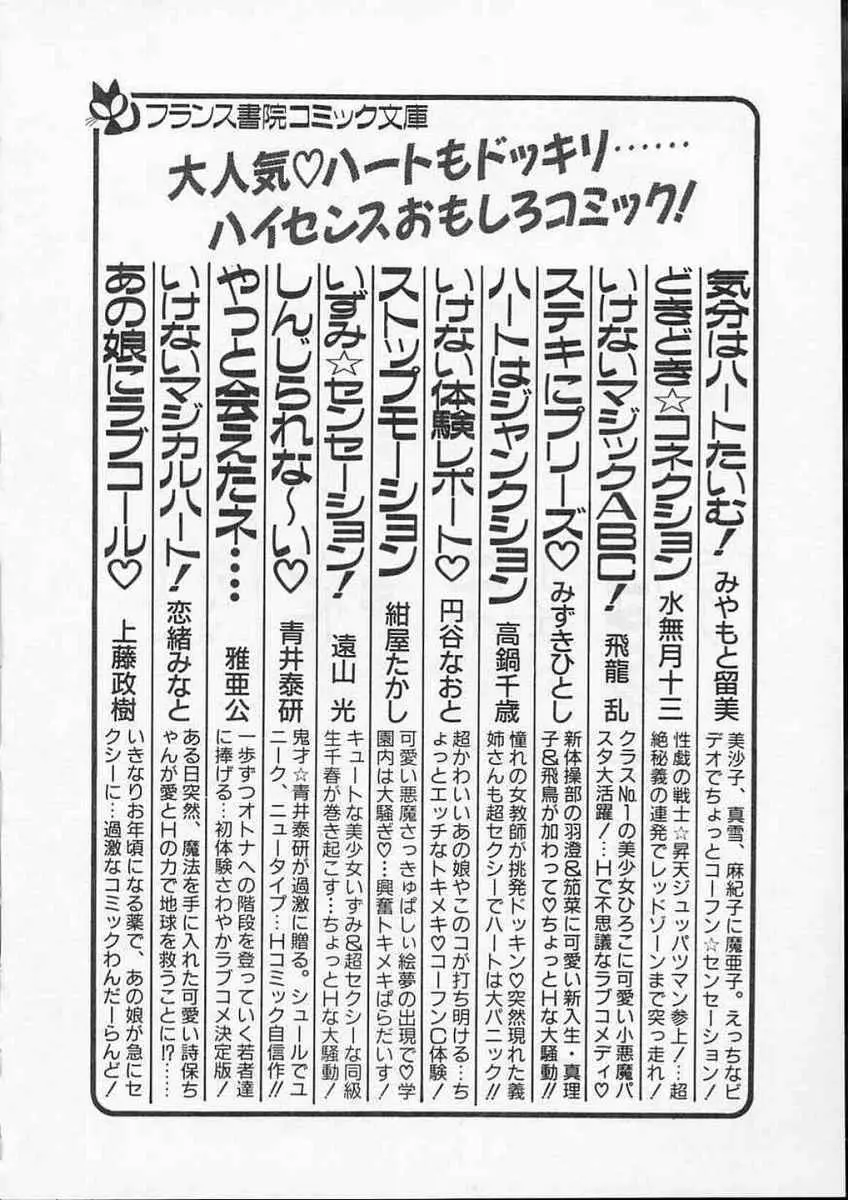 フランス書院コミック文庫
大人気♡ハートもドッキリ……
ハイセンスおもしろコミック!
気分はハートたいむ! みやもと留美
美沙子、真雪、麻紀子に魔亜子。えっちなビ
デオでちょっとコーフン☆センセーション!
どきどき☆コネクション 水無月十三
性戯の戦士☆昇天ジュッパツマン参上!…超
絶秘義の連発でレッドゾーンまで突っ走れ!
いけないマジックABC! 飛龍 乱
クラス№1の美少女ひろこに可愛い小悪魔パ
スタ大活躍!…Hで不思議なラブコメディ♡
ステキにプリーズ♡ みずきひとし
新体操部の羽澄&茄菜に可愛い新入生・真理
子&飛鳥が加わって♡ちょっとHな大騒動!!
ハートはジャンクション 高鍋千歳
憧れの女教師が挑発ドッキン♡突然現れた義
姉さんも超セクシーでハートは大パニック!!
いけない体験レポート♡ 円谷なおと
超かわいいあの娘やこのコが打ち明ける…ち
ょっとエッチなトキメキ♡コーフンC体験!
ストップモーション 紺屋たかし
可愛い悪魔さっきゅぱしぃ絵夢の出現で♡学
園内は大騒ぎ♡…興奮トキメキぱらだいす!
いずみ☆センセーション! 遠山 光
キュートな美少女いずみ&超セクシーな同級
生千春が巻き起こす…ちょっとHな大騒動!
しんじられな〜い♡ 青井泰研
鬼才☆青井泰研が過激に贈る。シュールでユ
ニーク、ニュータイプ…Hコミック自信作!!
やっと会えたネ…… 雅亜公
一歩ずつオトナへの階段を登っていく若者達
に捧げる…初体験さわやかラブコメ決定版!
いけないマジカルハート! 恋緒みなと
ある日突然、魔法を手に入れた可愛い詩保ち
ゃんが愛とHの力で地球を救うことに!?……
あの娘にラブコール♡ 上藤政樹
いきなりお年頃になる薬で、あの娘が急にセ
クシーに…過激なコミックわんだーらんど!